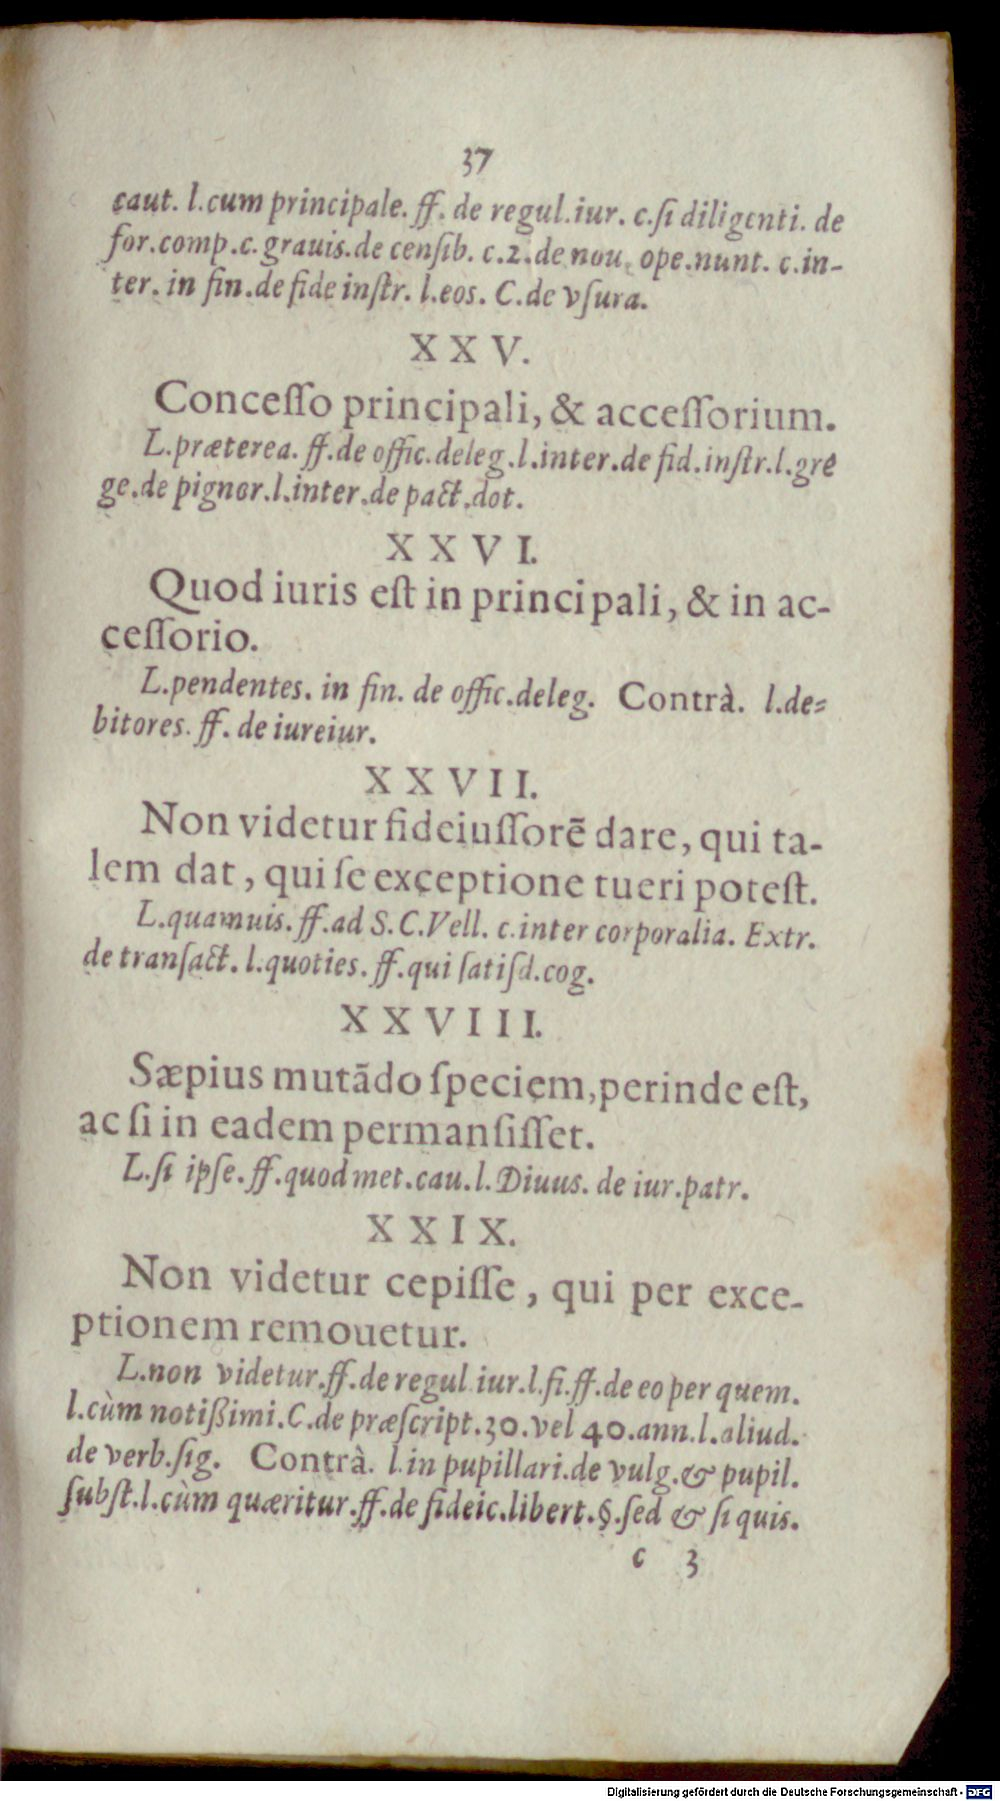 37
caut. l.cum principale. ff. de regul.iur. c.ſi diligenti. de
for.comp.c. grauis.de cenſib. c.2.de nou. ope.nunt. c.in-
ter. in fin.de fide inſtr. l.eos. C.de vſura.
X X V.
Conceſſo principali, & acceſſorium.
L.præterea. ff.de offic.deleg.l.inter.de fid.inſtr.l.gre
ge.de pignor.l.inter.de pact.dot.
X X V I.
Quod iuris eſt in principali, & in ac-
ceſſorio.
L.pendentes. in fin. de offic.deleg. Contrà. l.de-
bitores. ff. de iureiur.
X X V I I.
Non videtur fideiuſſorē dare, qui ta-
lem dat, qui ſe exceptione tueri poteſt.
L.quamuis. ff.ad S.C.Vell. c.inter corporalia. Extr.
de tranſact. l.quoties. ff.qui ſatiſd.cog.
X X V I I I.
Sæpius mutādo ſpeciem, perinde eſt,
ac ſi in eadem permanſiſſet.
L.ſi ipſe. ff.quod met.cau.l. Diuus. de iur.patr.
X X I X.
Non videtur cepiſſe, qui per exce-
ptionem remouetur.
L.non videtur.ff.de regul iur.l.fi.ff.de eo per quem.
l.cùm notißimi.C.de præſcript.30.vel 40.ann.l.aliud.
de verb.ſig. Contrà. l.in pupillari.de vulg.& pupil.
ſubſt.l.cùm quæritur.ff.de fideic.libert.§.ſed & ſi quis.
c 3
Digitalisierung gefördert durch die Deutsche Forschungsgemeinschaft - DFG